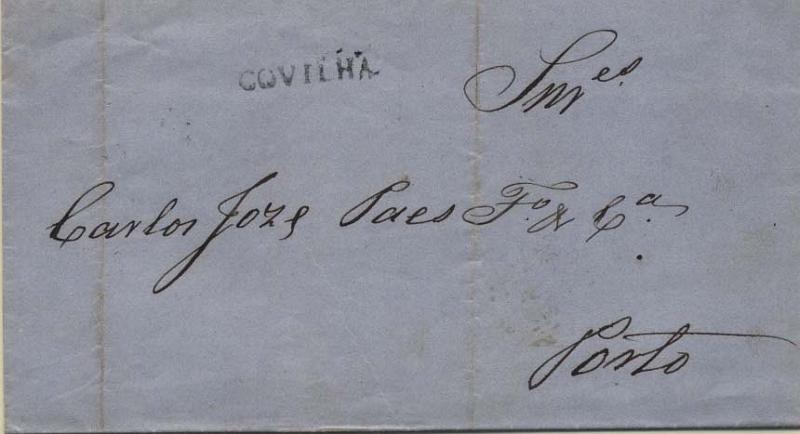 COVILHÃ
Snres.
Carlos Joze Paes Fo. & Ca.
Porto